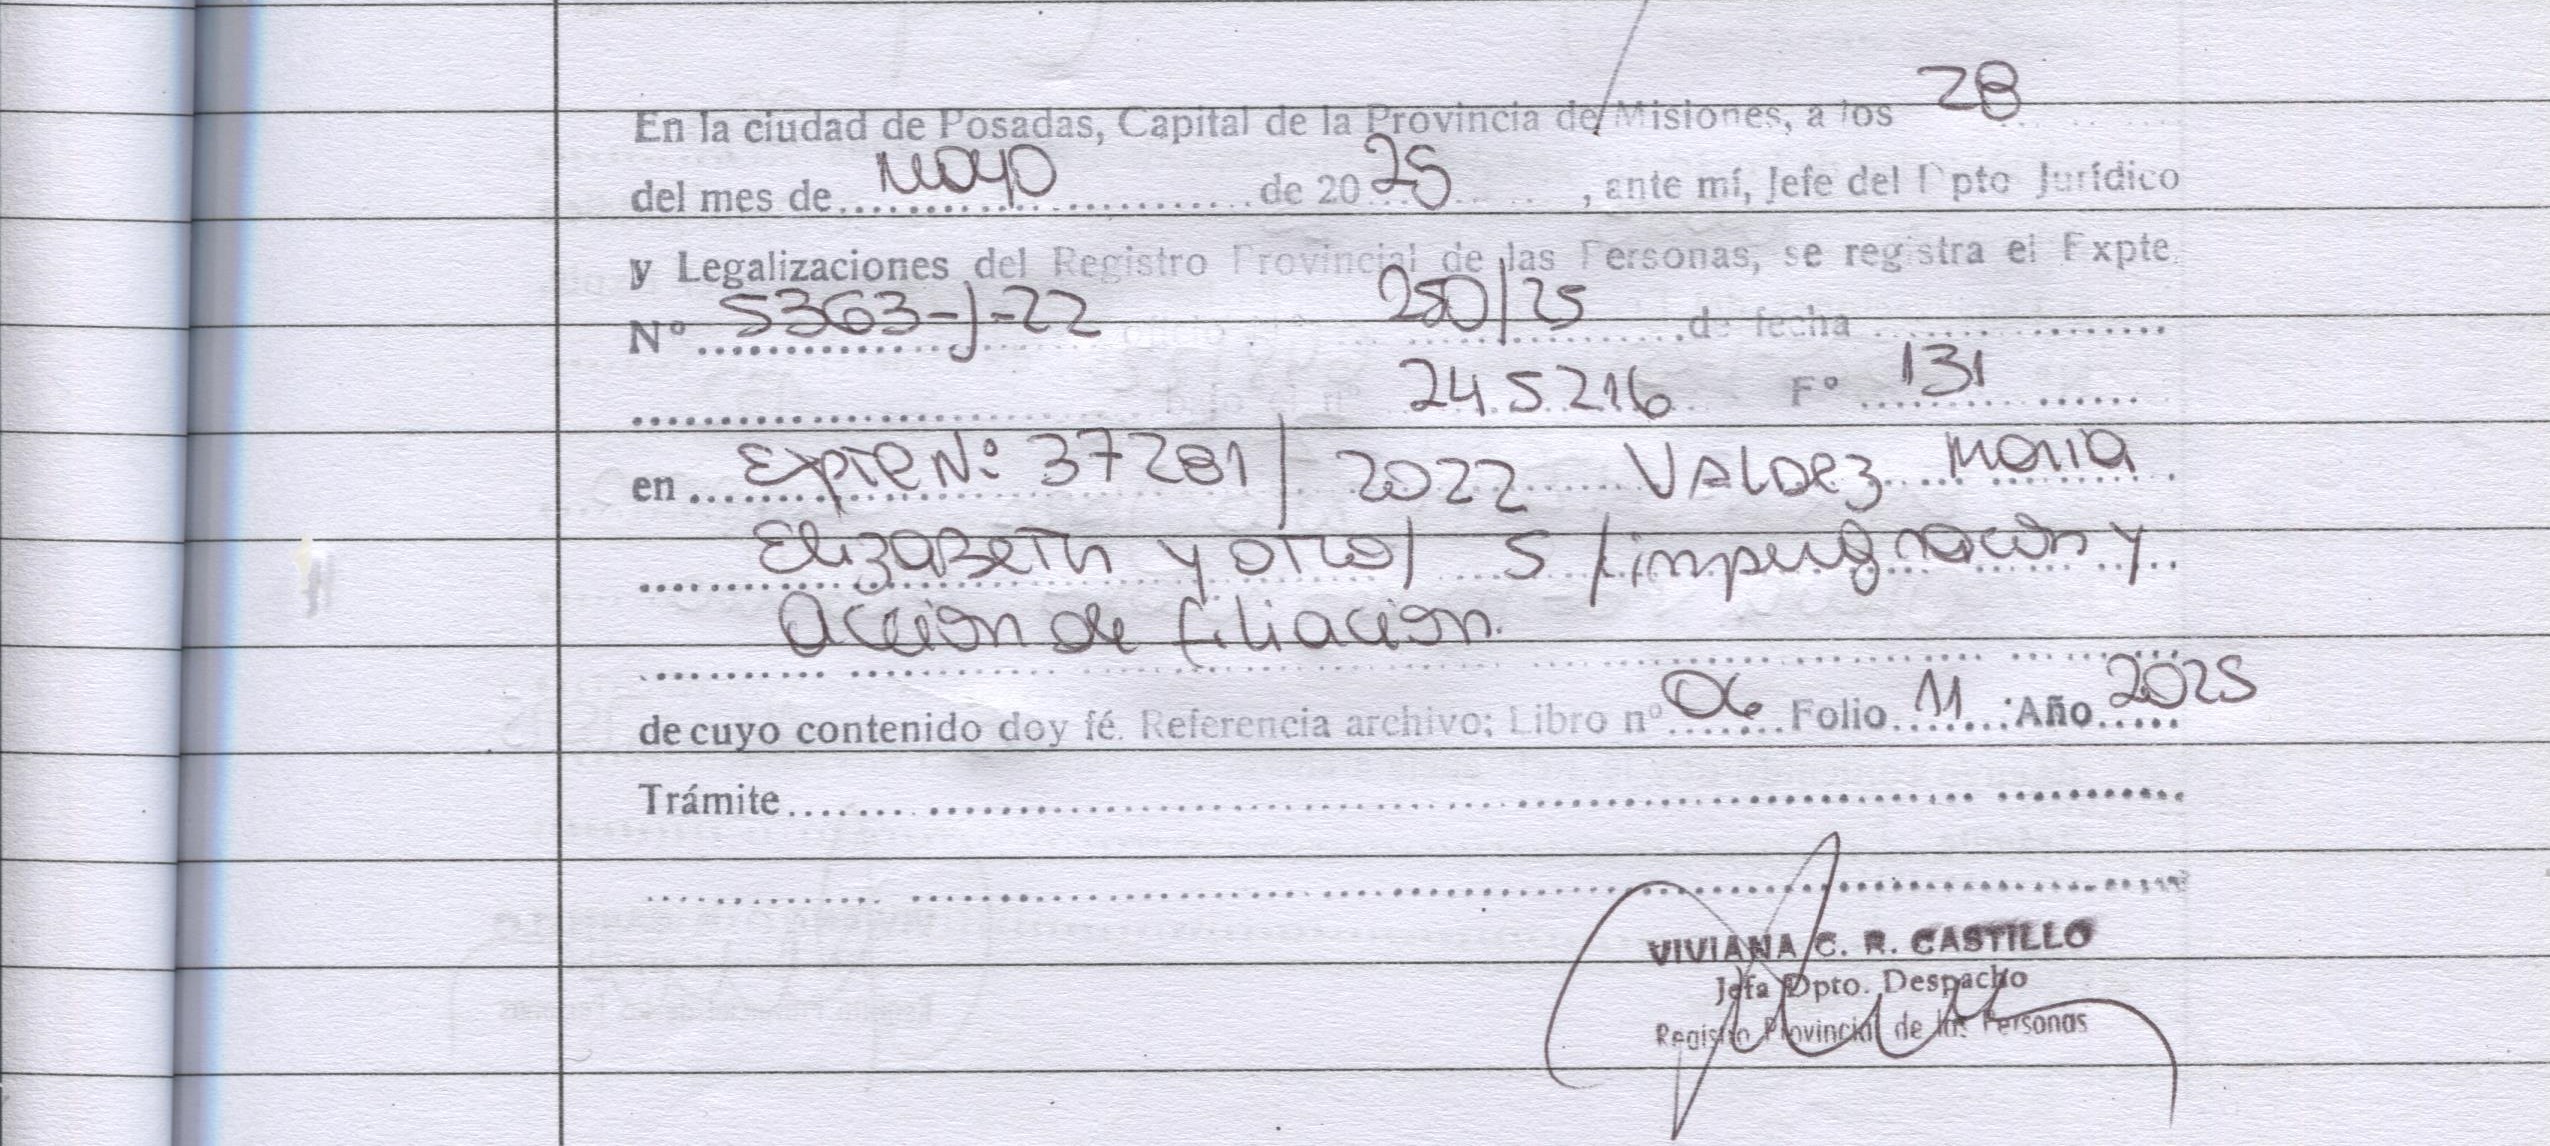 En la ciudad de Posadas, Capital de la Provincia de Misiones, a los 28
del mes de mayo de 2025, ante mí, Jefe del Dpto Jurídico
y Legalizaciones del Registro Provincial de las Personas, se registra el Expte.
Nº 5363-J-22 oficio 250/25 de fecha
24.5.216 Fº 131
en Expte Nº: 37281/2022 Valdez Maria
Elizabeth y otro/ S/impugnación y
acción de filiación.
de cuyo contenido doy fé. Referencia archivo: Libro nº 06 Folio 11 Año 2025
Trámite
VIVIANA C. R. CASTILLO
Jefa Dpto. Despacho
Registro Provincial de las Personas